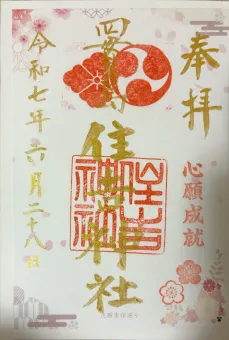 奉拝
心願成就
四貫島
住吉神社
住吉
神社
令和七年六月二十八日